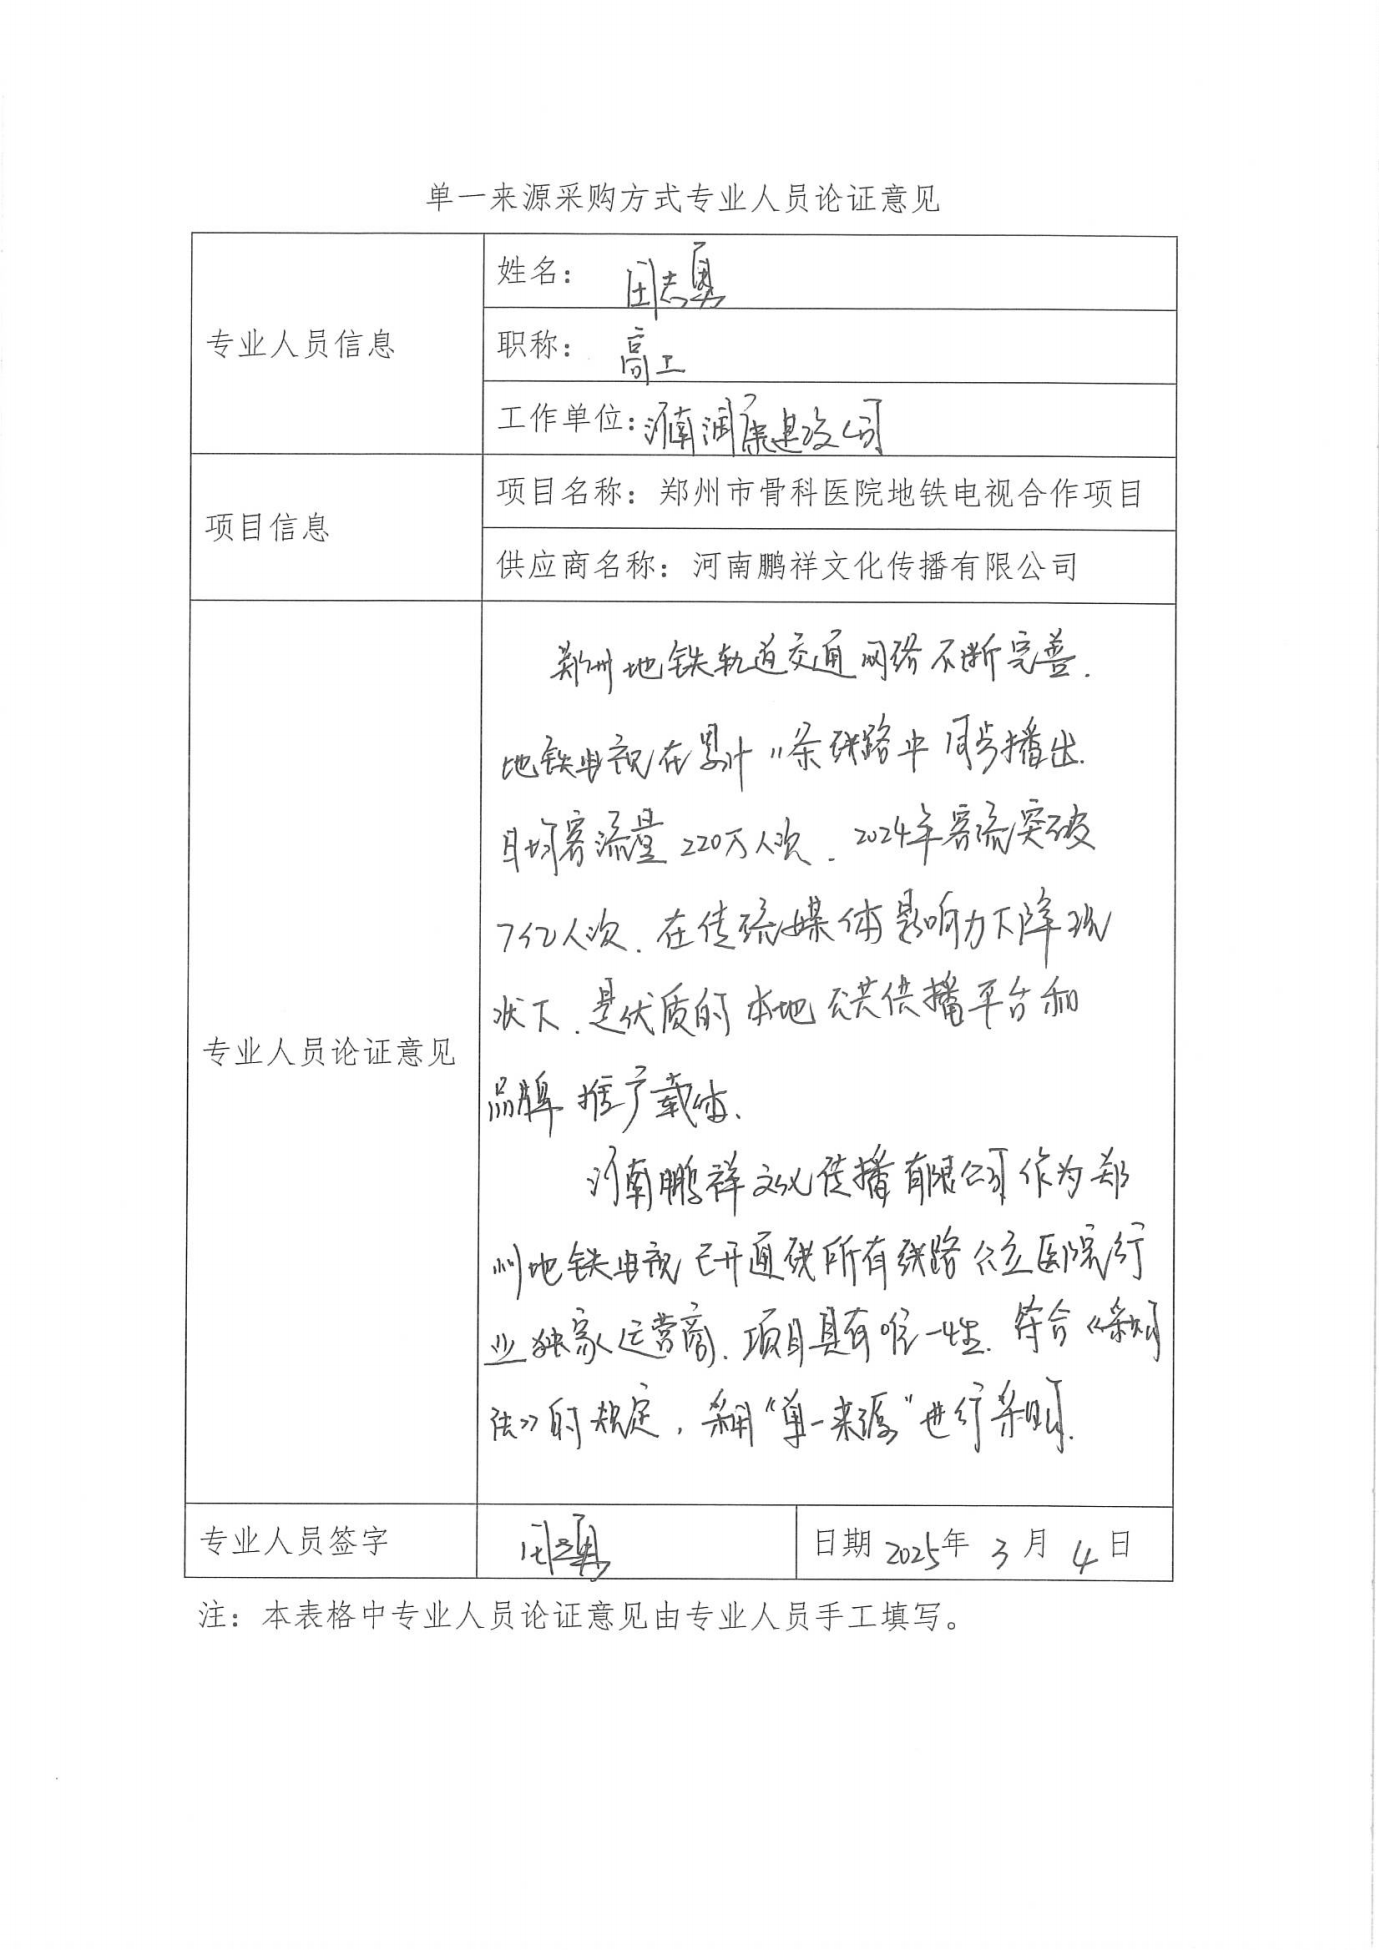 单一来源采购方式专业人员论证意见
专业人员信息
姓名：周志勇
职称：高工
工作单位：河南润康建设公司
项目信息
项目名称：郑州市骨科医院地铁电视合作项目
供应商名称：河南鹏祥文化传播有限公司
专业人员论证意见
郑州地铁轨道交通网络不断完善.
地铁电视在累计11条线路中同步播出.
日均客流量220万人次.2024年客流突破
7亿人次.在传统媒体影响力下降现
状下.是优质的本地公共传播平台和
品牌推广载体.
河南鹏祥文化传播有限公司作为郑
州地铁电视已开通线所有线路公立医院行
业独家运营商.项目具有唯一性.符合《采购
法》的规定，采用“单一来源”进行采购.
专业人员签字
周志勇
日期 2025年 3 月 4 日
注：本表格中专业人员论证意见由专业人员手工填写。